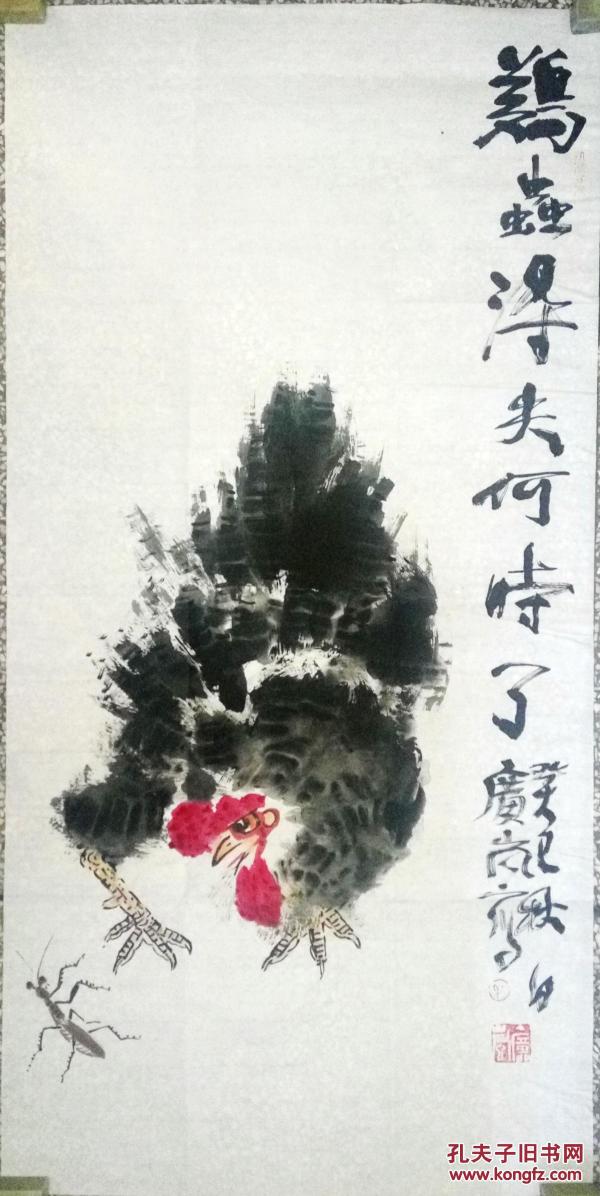 鷄蟲得失何時了
癸巳秋月
廣
孔夫子旧书网
www.kongfz.com